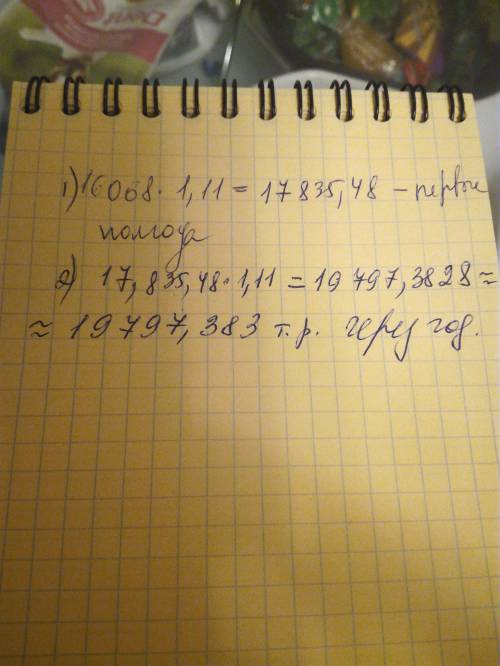 Dent
1) 16068 · 1,11 = 17835,48 – первые
полгода
2) 17,835,48 · 1,11 = 19797,3828 ≈
≈ 19797,383 т.р. через год.